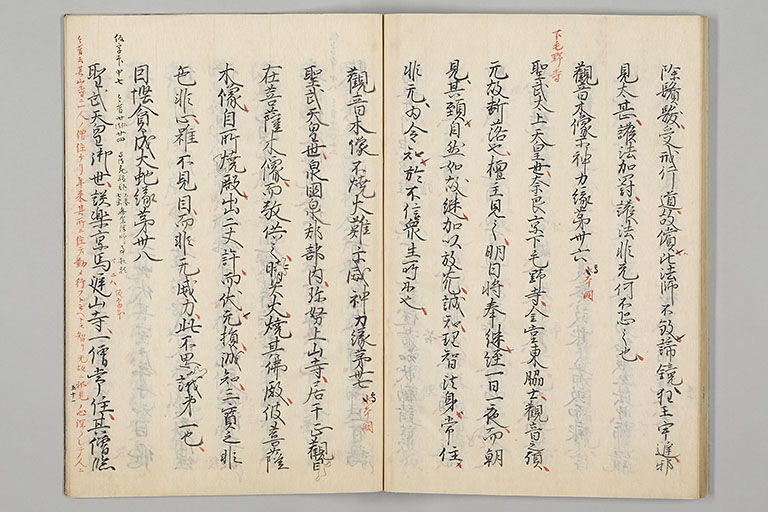 除鬚髮受戒行道故償此法師不敬諦鏡狂王宇遅邪
見太甚護法加罸護法非无何不恐之也
觀音木像示神力縁第卅六
下毛野寺
聖武太上天皇世奈良京下毛野寺金堂東脇士觀音之頸
无故断落也檀主見之明日將奉継經一日一夜而朝
見其頸自然如故継加以放光誠知理智法身常住
非无為令知於不信衆生所示也
觀音木像不燒火難示威神力縁第卅七
聖武天皇世泉國泉郡部内珎努上山寺居于正觀自
在菩薩木像而敬供之時失火燒其佛殿彼菩薩
木像自所燒殿出二丈許而伏无損誠知三寶之非
色非心雖不見目而非无威力此不思議第一也
因慳貪成大虵縁第卅八
聖武天皇御世諾樂京馬庭山寺一僧常住其僧臨